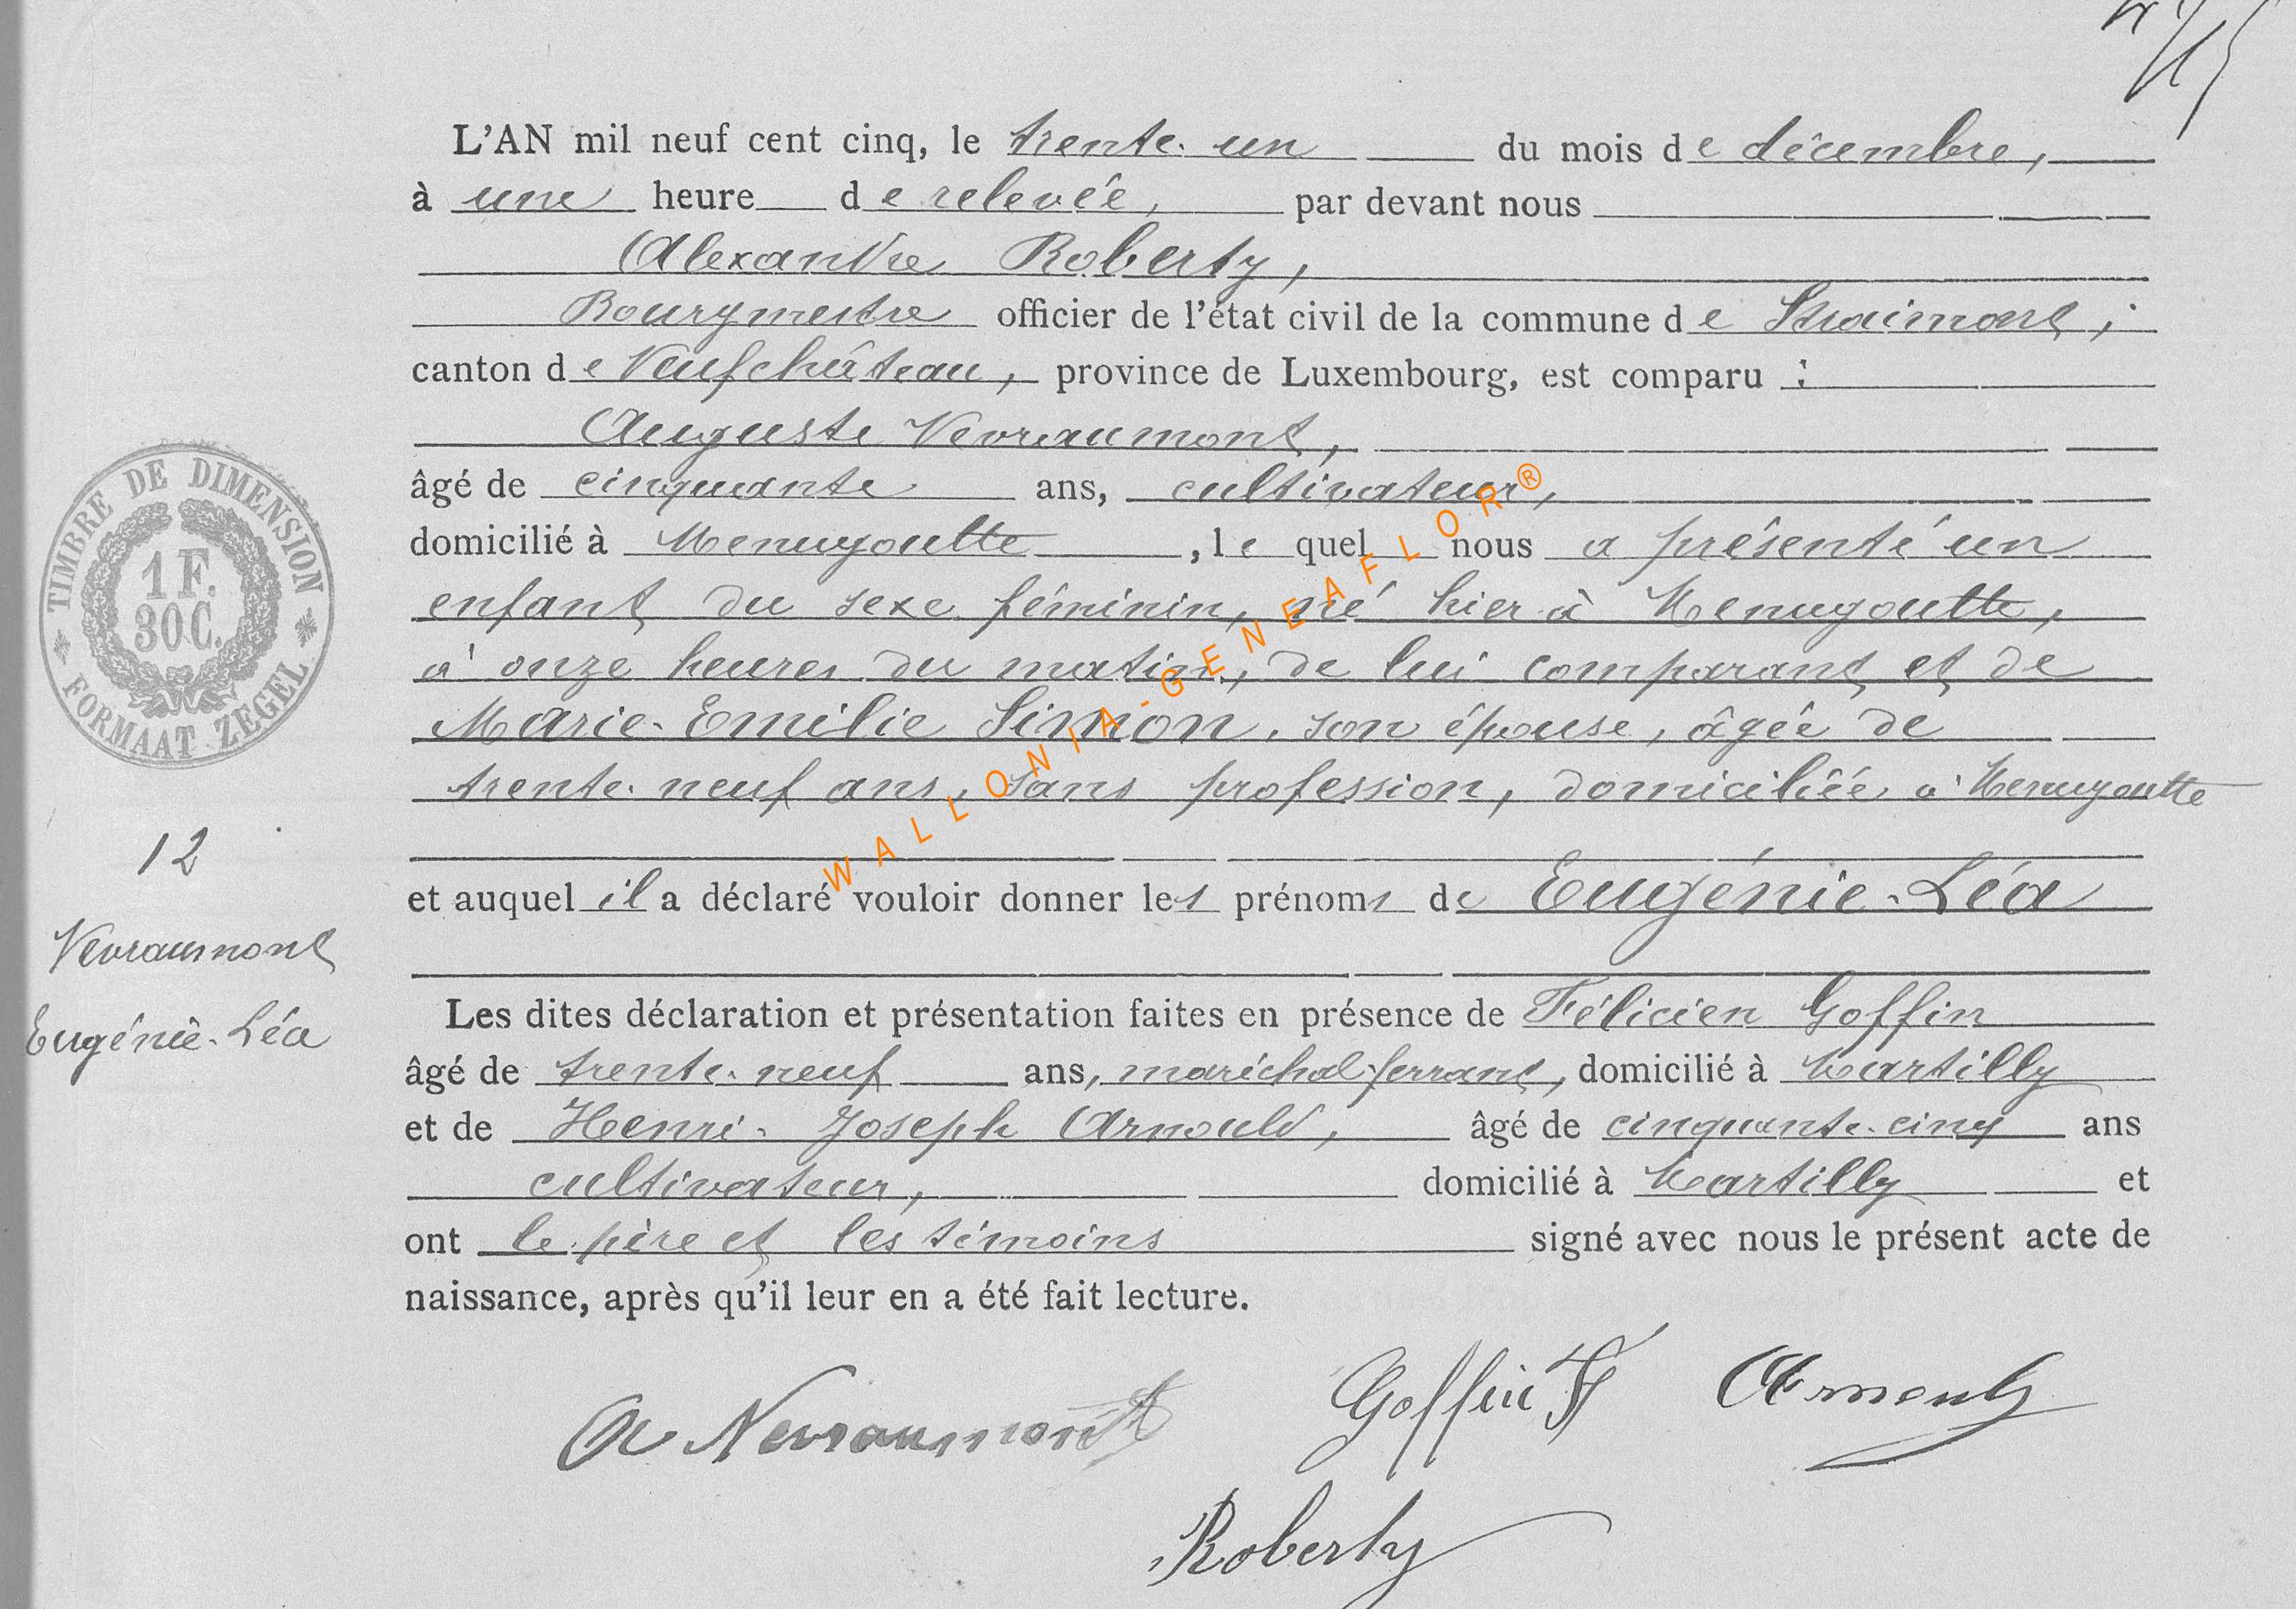 L'AN mil neuf cent cinq, le trente-un du mois de décembre,
à une heure de relevée, par devant nous
Alexandre Roberty,
Bourgmestre officier de l'état civil de la commune de Straimont,
canton de Neufchâteau, province de Luxembourg, est comparu :
Auguste Nevraumont,
âgé de cinquante ans, cultivateur,
domicilié à Menugoutte, le quel nous a présenté un
enfant du sexe féminin, né hier à Menugoutte,
à onze heures du matin, de lui comparant et de
Marie-Emilie Simon, son épouse, âgée de
trente-neuf ans, sans profession, domiciliée à Menugoutte
et auquel il a déclaré vouloir donner les prénoms de Eugénie-Léa
Les dites déclaration et présentation faites en présence de Félicien Goffin
âgé de trente-neuf ans, maréchal-ferrant, domicilié à Martilly
et de Henri-Joseph Arnould, âgé de cinquante-cinq ans
cultivateur, domicilié à Martilly et
ont le père et les témoins signé avec nous le présent acte de
naissance, après qu'il leur en a été fait lecture.
A Nevraumont Goffin F Arnould
Roberty
TIMBRE DE DIMENSION
1 F.
30 C.
FORMAAT ZEGEL
12
Nevraumont
Eugénie-Léa
WALLONIA-GENEAFLOR®